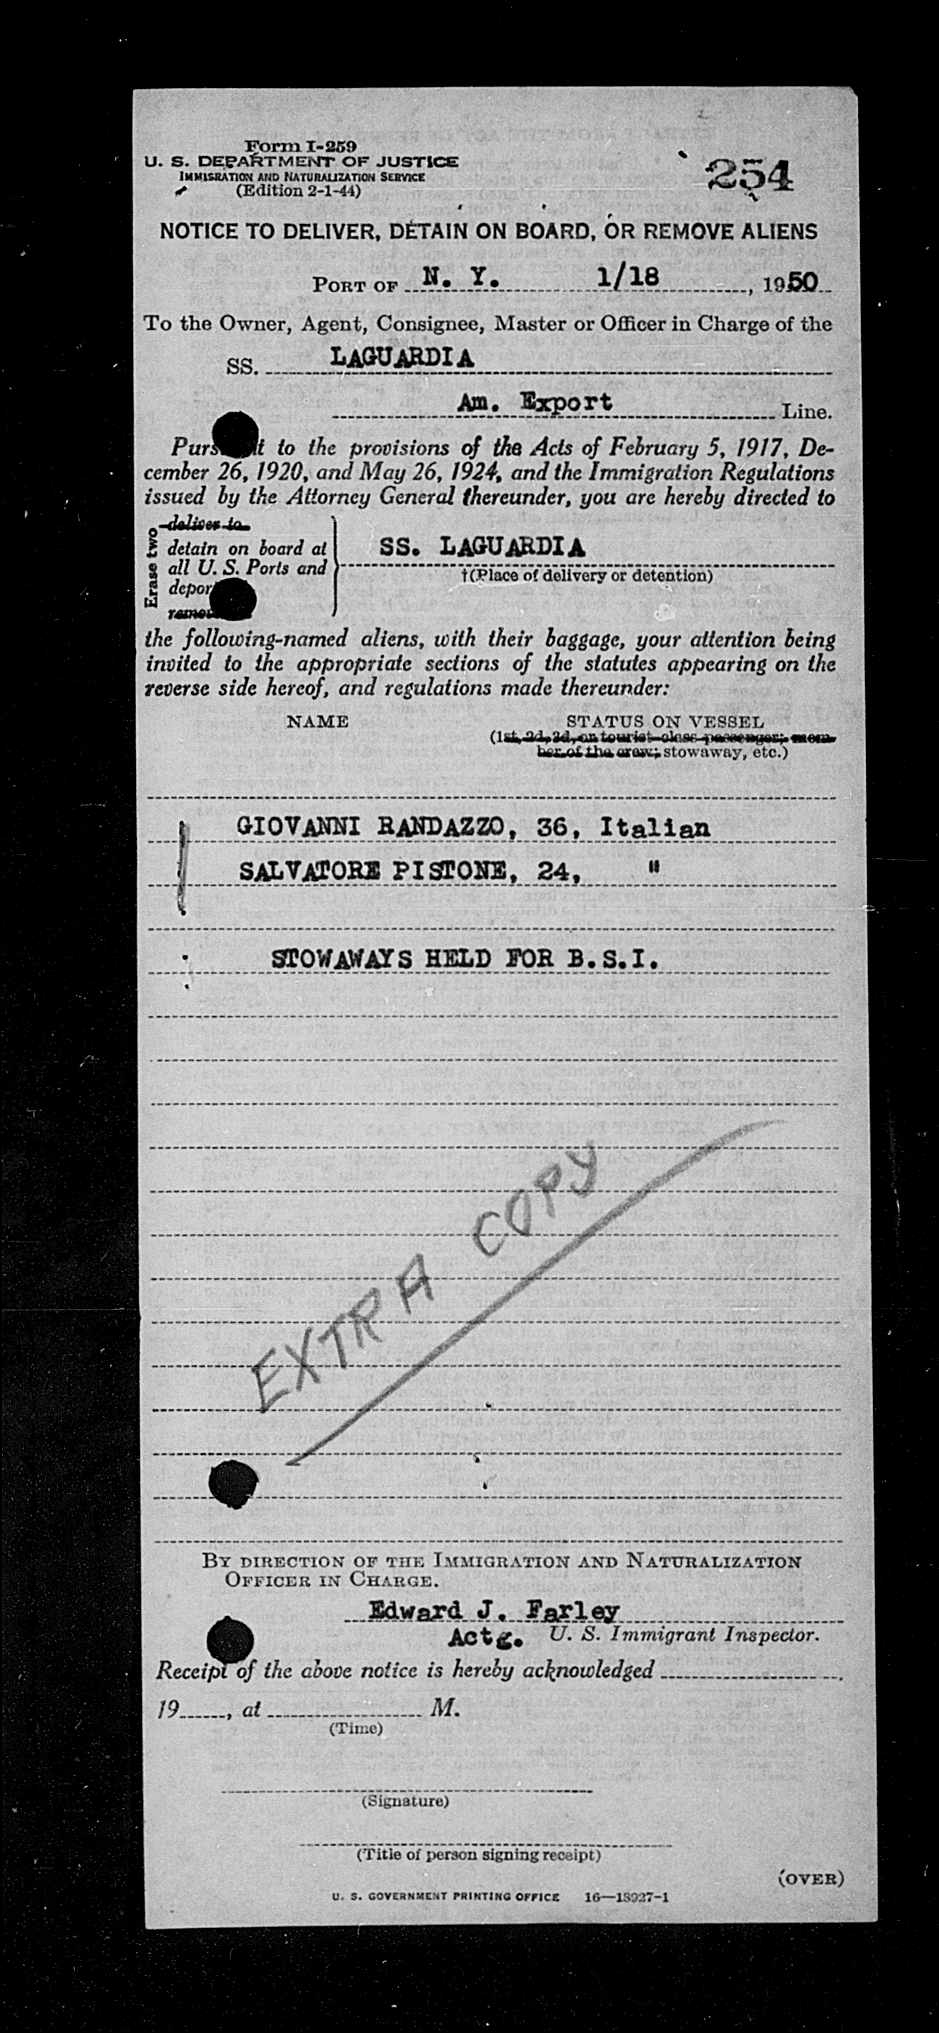 Form I-259
U. S. DEPARTMENT OF JUSTICE
IMMIGRATION AND NATURALIZATION SERVICE
(Edition 2-1-44)
254
NOTICE TO DELIVER, DETAIN ON BOARD, OR REMOVE ALIENS
PORT OF N. Y. 1/18, 1950
To the Owner, Agent, Consignee, Master or Officer in Charge of the
SS. LAGUARDIA
Am. Export Line.
Pursuant to the provisions of the Acts of February 5, 1917, De-
cember 26, 1920, and May 26, 1924, and the Immigration Regulations
issued by the Attorney General thereunder, you are hereby directed to
Erase two
deliver to
detain on board at
all U. S. Ports and
depor
remov
SS. LAGUARDIA
†(Place of delivery or detention)
the following-named aliens, with their baggage, your attention being
invited to the appropriate sections of the statutes appearing on the
reverse side hereof, and regulations made thereunder:
NAME STATUS ON VESSEL
(1st, 2d, 3d, or tourist-class passenger; mem-
ber of the crew; stowaway, etc.)
GIOVANNI RANDAZZO, 36, Italian
SALVATORE PISTONE, 24, "
STOWAWAYS HELD FOR B.S.I.
EXTRA COPY
BY DIRECTION OF THE IMMIGRATION AND NATURALIZATION
OFFICER IN CHARGE.
Edward J. Farley
Actg. U. S. Immigrant Inspector.
Receipt of the above notice is hereby acknowledged
19, at M.
(Time)
(Signature)
(Title of person signing receipt)
(OVER)
U. S. GOVERNMENT PRINTING OFFICE 16—18927-1